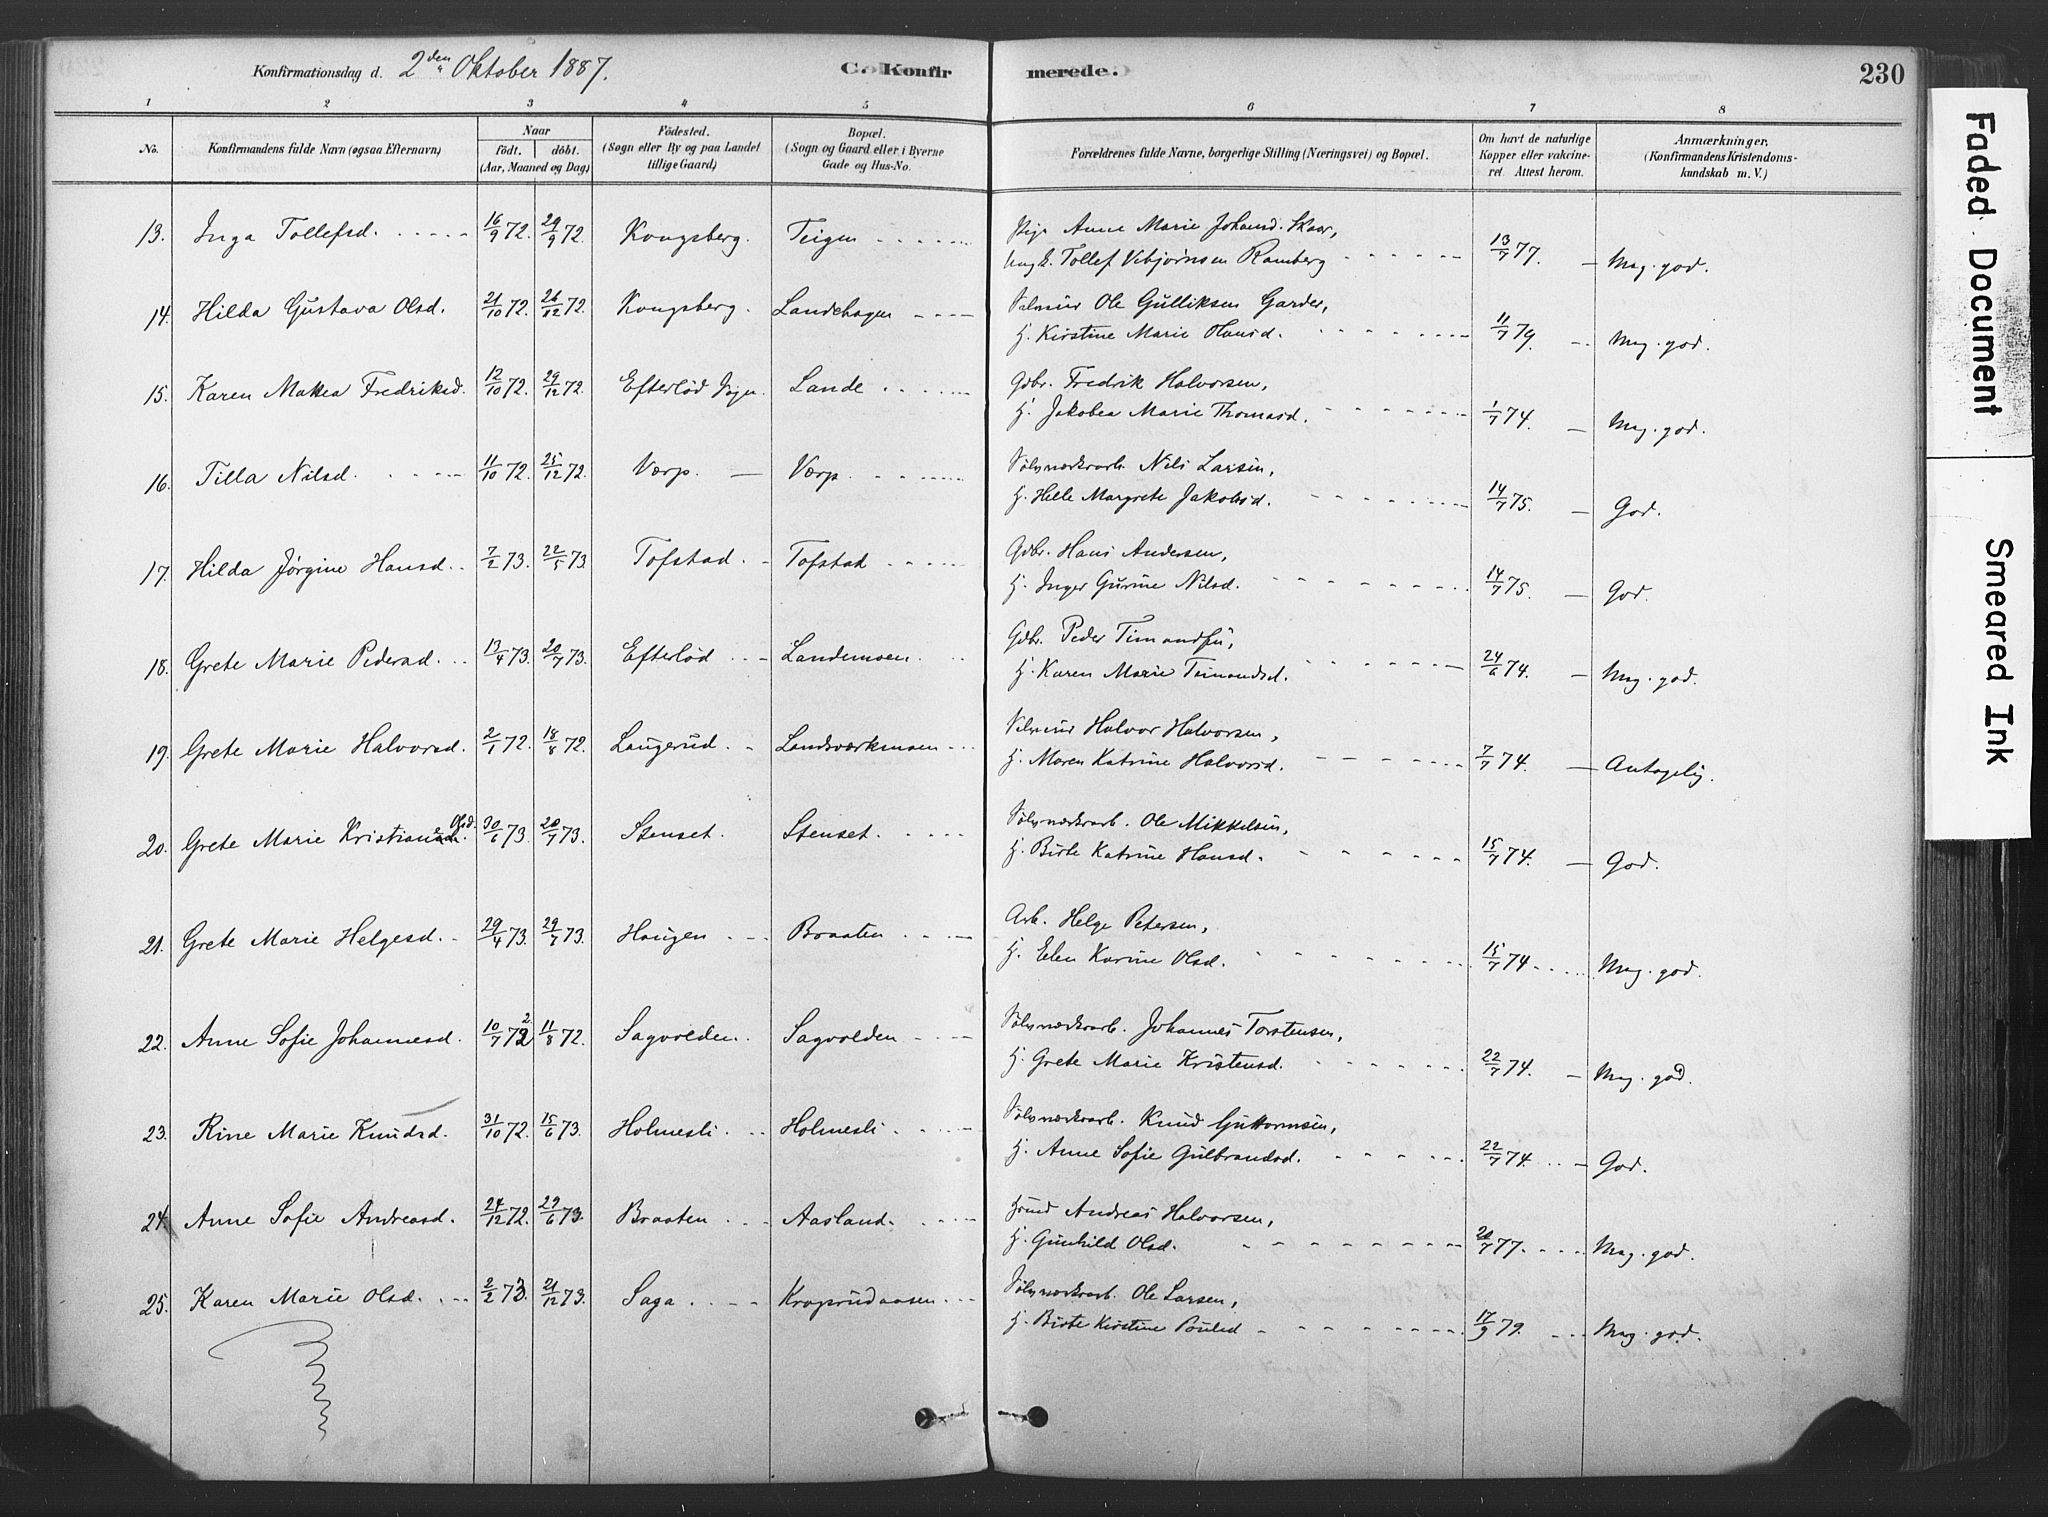 Konfirmationsdag d. 2den Oktober 1887.
C. Konfirmerede.
230
1 2 3 4 5 6 7 8
No.
Konfirmandens fulde Navn (ogsaa Efternavn)
Naar
født. døbt.
(Aar, Maaned og Dag)
Födested.
(Sogn eller By og paa Landet
tillige Gaard)
Bopæl.
(Sogn og Gaard eller i Byerne
Gade og Hus-No.
Forældrenes fulde Navne, borgerlige Stilling (Næringsvei) og Bopæl.
Om havt de naturlige
Kopper eller vakcine-
ret. Attest herom.
Anmærkninger.
(Konfirmandens Kristendoms-
kundskab m. V.)
13. Inga Tollefsd. 16/9 72. 29/9 72. Kongsberg. Teigen Pige Anne Marie Johansd. Skaar,
Ungk. Tollef Vebjørnsen Ramberg 13/7 77. Meg. god.
14. Hilda Gustava Olsd. 21/10 72. 26/12 72. Kongsberg. Landehagen Ole Gulliksen Garder,
H. Kirstine Marie Hansd. 11/7 79. Meg. god.
15. Karen Makea Fredriksd. 12/10 72. 29/12 72. Efterlød Lande Gdbr. Fredrik Halvorsen,
H. Jakobea Marie Thomasd. 1/7 74. Meg. god.
16. Tilla Nilsd. 11/10 72. 25/12 72. Værp. Værp. Sølvværksarb. Nils Larsen,
H. Helle Margrete Jakobsd. 14/7 75. God.
17. Hilda Jørgine Hansd. 7/2 73. 22/5 73. Tofstad. Tofstad Gdbr. Hans Andersen,
H. Inger Gurine Nilsd. 14/7 75. God.
18. Grete Marie Pedersd. 13/4 73. 20/7 73. Efterlød Landemoen. Gdbr. Peder
H. Karen Marie Timandsd. 24/6 74. Meg. god.
19. Grete Marie Halvorsd. 2/1 72. 18/8 72. Laugerud. Landsværkmoen Halvor Halvorsen,
H. Maren Katrine Halvorsd. 7/7 74. Antagelig.
20. Grete Marie Kristiane Olsd. 30/6 73. 20/7 73. Stenset. Stenset. Sølvværksarb. Ole Mikkelsen,
H. Birte Katrine Hansd. 15/7 74. God.
21. Grete Marie Helgesd. 29/4 73. 29/7 73. Haugen Braaten Arb. Helge Petersen,
H. Elen Karine Olsd. 15/7 74. Meg. god.
22. Anne Sofie Johannesd. 10/7 72 2 11/8 72. Sagvolden. Sagvolden Sølvværksarb. Johannes Torstensen,
H. Grete Marie Kristensd. 22/7 74. Meg. god.
23. Rine Marie Knudsd. 31/10 72. 15/6 73. Holmesli Holmesli Sølvværksarb. Knud Guttormsen,
H. Anne Sofie Gulbrandsd. 22/7 74. God.
24. Anne Sofie Andreasd. 24/12 72. 29/6 73. Braaten Aasland. Andreas Halvorsen,
H. Gunhild Olsd. 20/7 77. Meg. god.
25. Karen Marie Olsd. 2/2 73. 21/12 73. Saga. Sølvværksarb. Ole Larsen,
H. Birte Kirstine Poulsd 17/9 79. Meg. god.
Faded Document
Smeared Ink